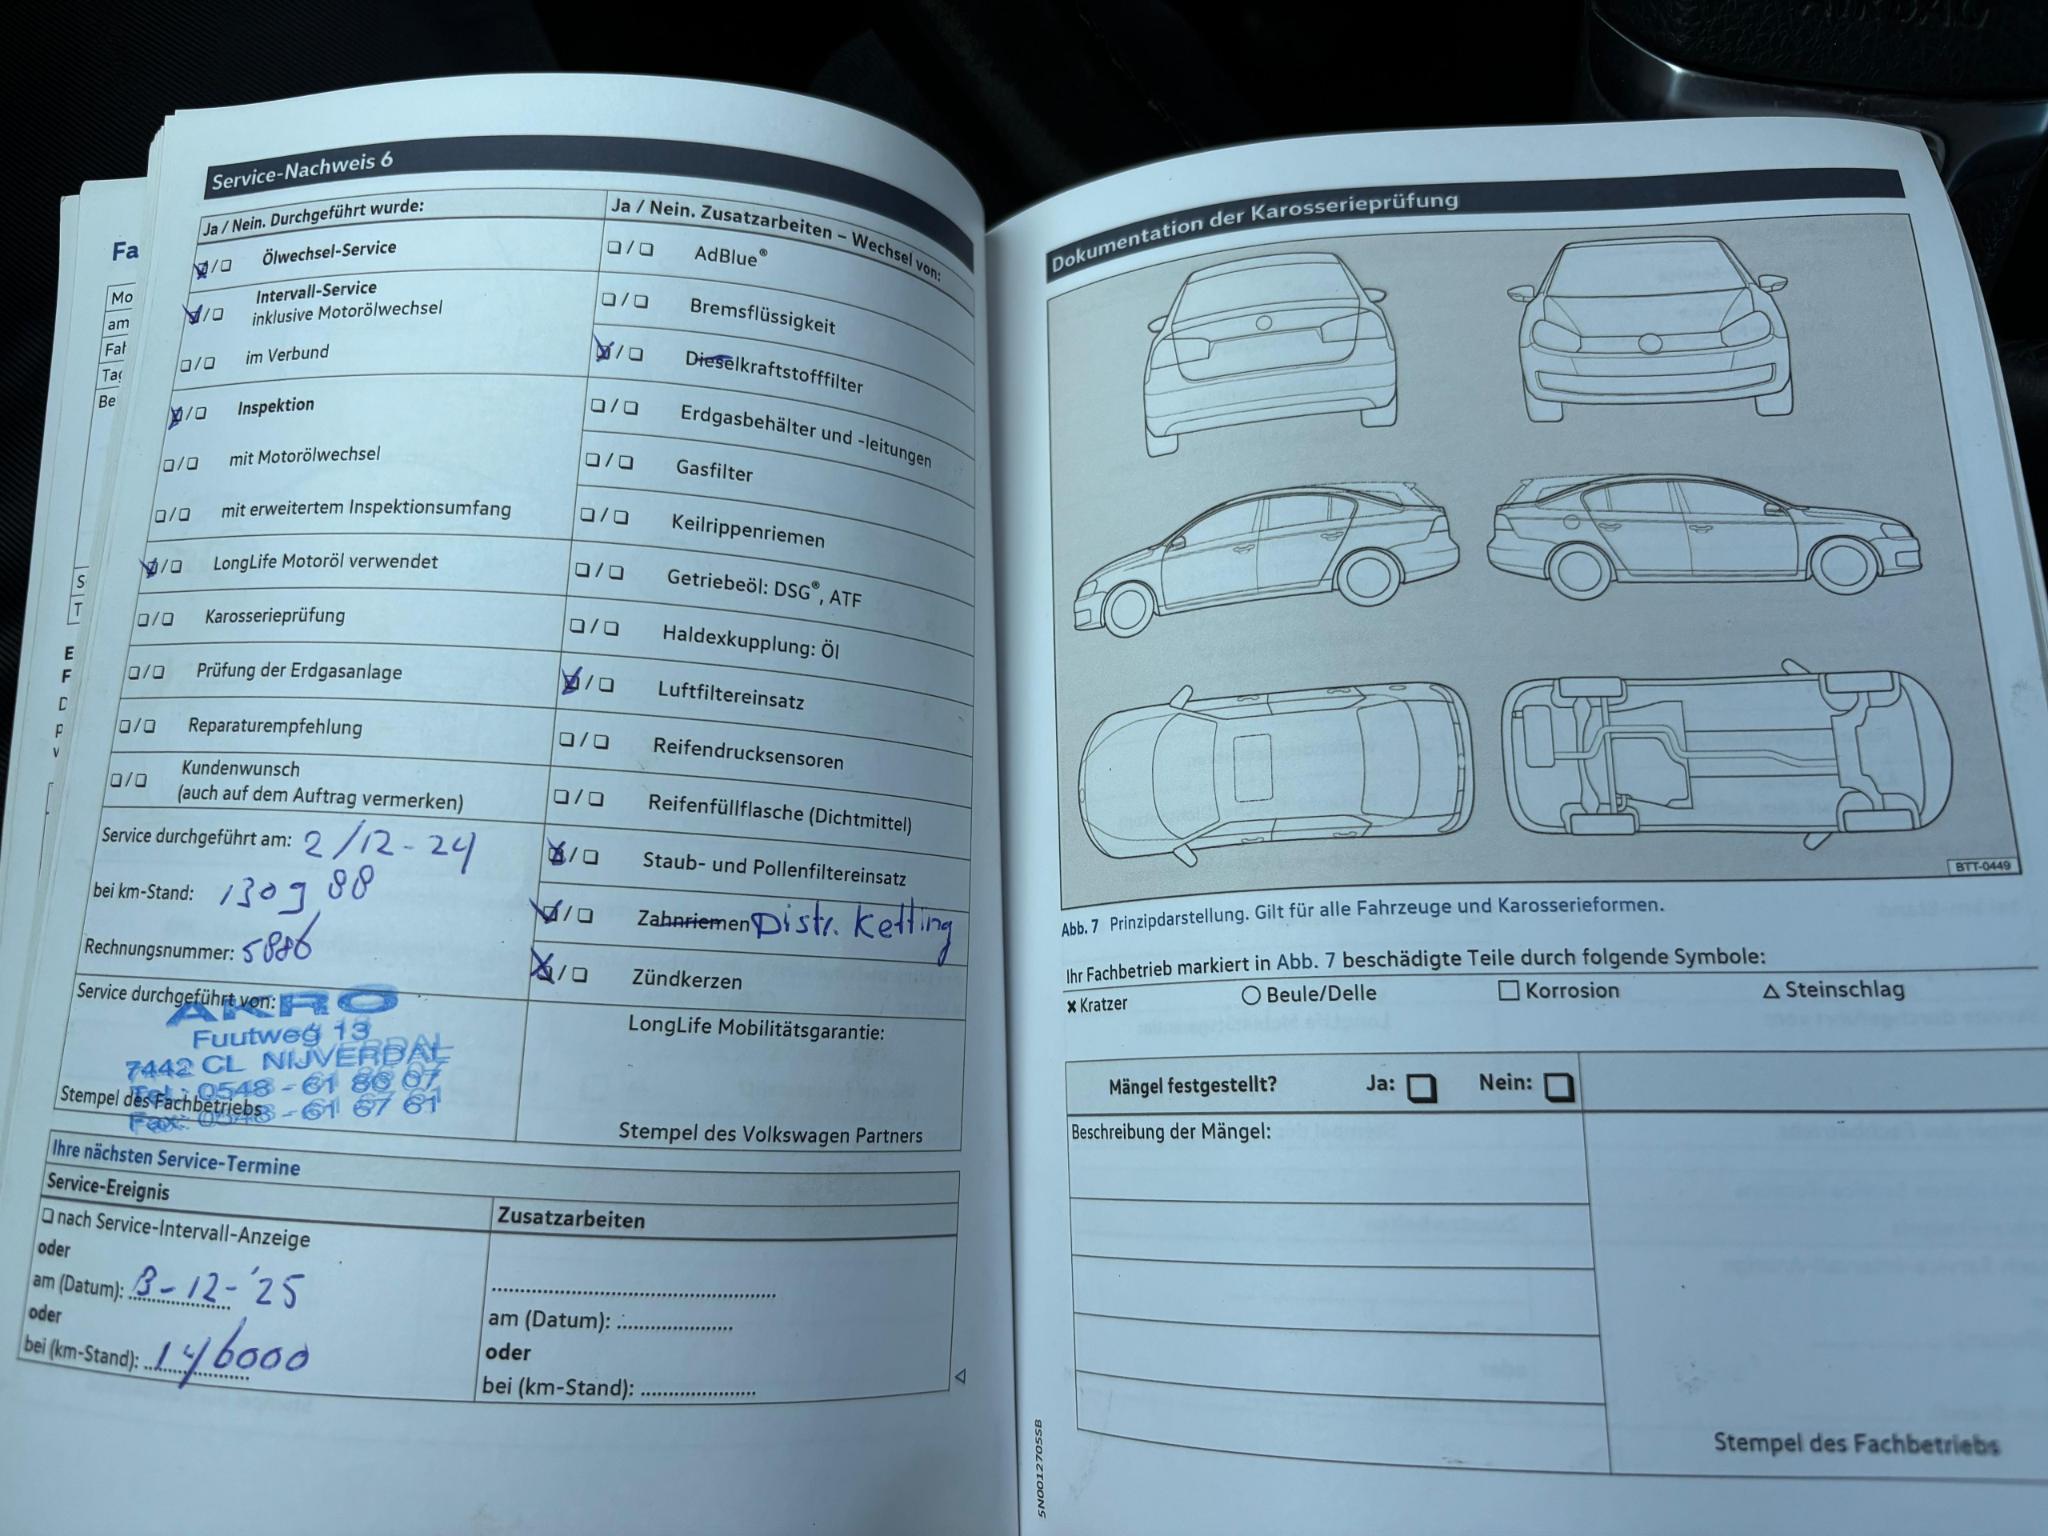 AIRBAG
Fa
Mo
am
Fah
Tag
Be
S
T
E
F
D
p
v
Service-Nachweis 6
Ja / Nein. Durchgeführt wurde:
Ölwechsel-Service
Intervall-Service
inklusive Motorölwechsel
im Verbund
Inspektion
mit Motorölwechsel
mit erweitertem Inspektionsumfang
LongLife Motoröl verwendet
Karosserieprüfung
Prüfung der Erdgasanlage
Reparaturempfehlung
Kundenwunsch
(auch auf dem Auftrag vermerken)
Service durchgeführt am: 2/12-24
bei km-Stand: 130988
Rechnungsnummer: 5886
Service durchgeführt von:
AKRO
Fuutweg 13
7442 CL NIJVERDAL
Tel.: 0548 - 61 86 07
Fax: 0548 - 61 67 61
Stempel des Fachbetriebs
Ja / Nein. Zusatzarbeiten – Wechsel von:
AdBlue®
Bremsflüssigkeit
Dieselkraftstofffilter
Erdgasbehälter und -leitungen
Gasfilter
Keilrippenriemen
Getriebeöl: DSG®, ATF
Haldexkupplung: Öl
Luftfiltereinsatz
Reifendrucksensoren
Reifenfüllflasche (Dichtmittel)
Staub- und Pollenfiltereinsatz
Zahnriemen Distr. Ketting
Zündkerzen
LongLife Mobilitätsgarantie:
Stempel des Volkswagen Partners
Ihre nächsten Service-Termine
Service-Ereignis
nach Service-Intervall-Anzeige
oder
am (Datum): 3-12-'25
oder
bei (km-Stand): 146000
Zusatzarbeiten
am (Datum):
oder
bei (km-Stand):
Dokumentation der Karosserieprüfung
BTT-0449
Abb. 7 Prinzipdarstellung. Gilt für alle Fahrzeuge und Karosserieformen.
Ihr Fachbetrieb markiert in Abb. 7 beschädigte Teile durch folgende Symbole:
× Kratzer ○ Beule/Delle □ Korrosion △ Steinschlag
Mängel festgestellt? Ja: Nein:
Beschreibung der Mängel:
Stempel des Fachbetriebs
5N0012705SB